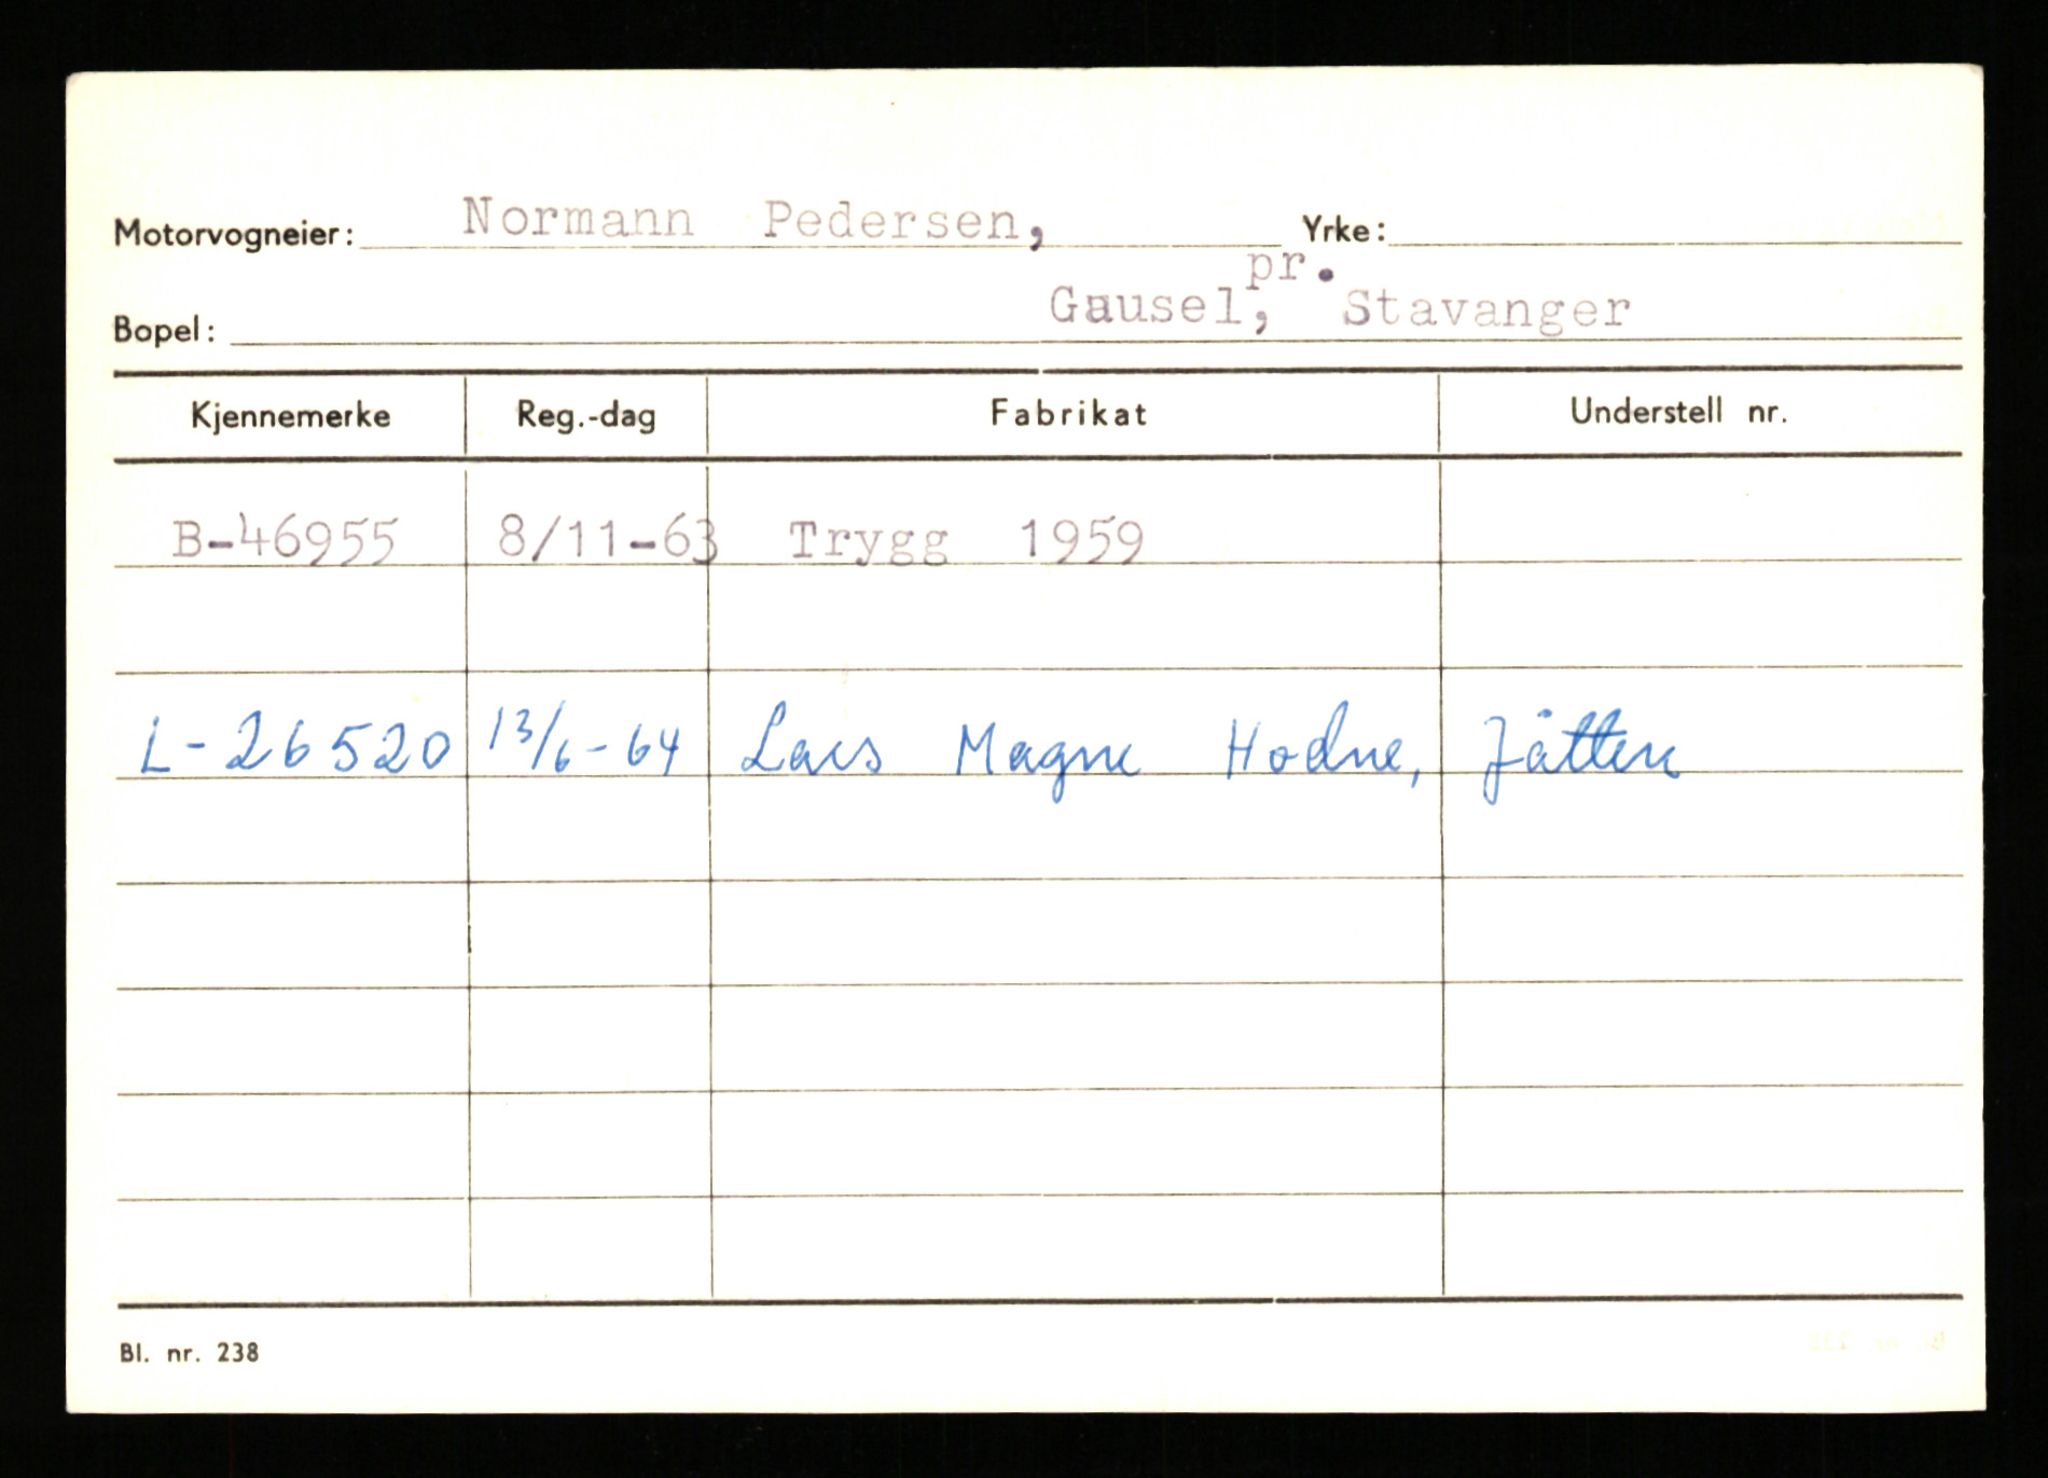 Motorvogneier: Normann Pedersen, Yrke:
pr.
Bopel: Gausel, Stavanger
Kjennemerke Reg.-dag Fabrikat Understell nr.
B-46955 8/11-63 Trygg 1959
L-26520 13/6-64 Lars Magne Hodne, Jåtten
Bl. nr. 238